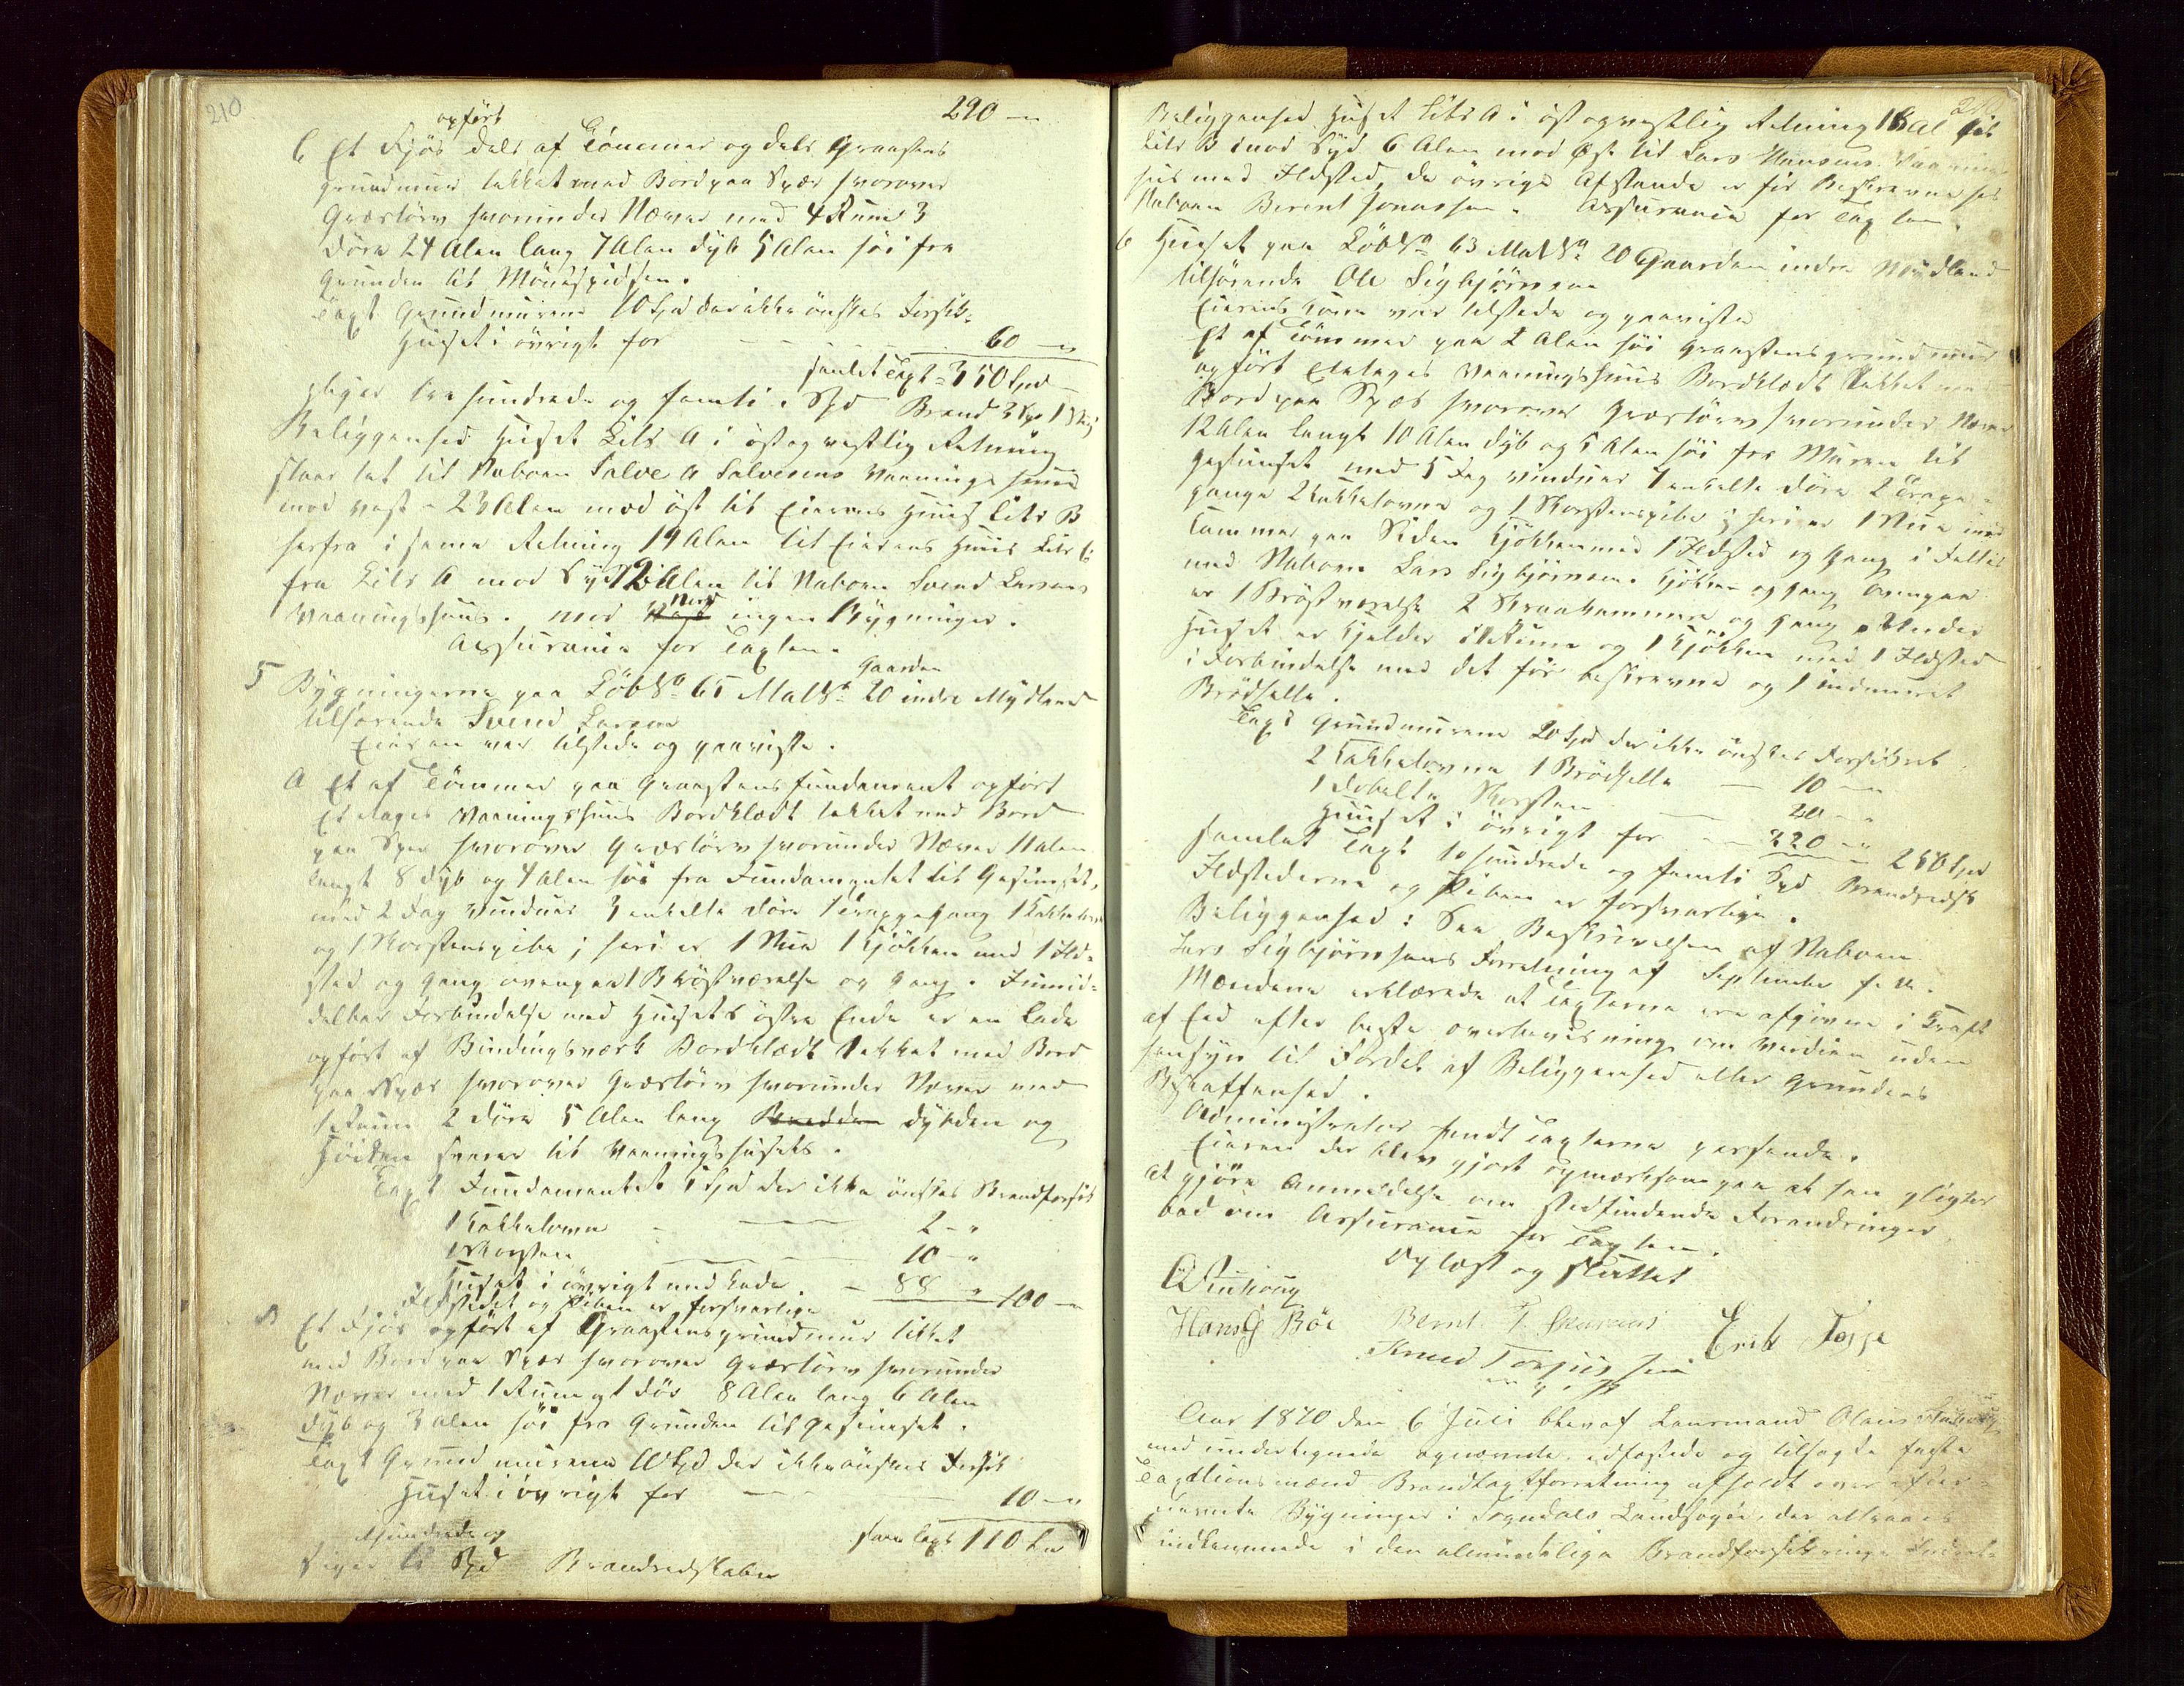 210
290 -"
opført
C Et Fjös dels af Tömmer og dels Graastens
grundmuur tækket med Bord paa Spær hvorover
Græstörv hvorunder Næver med 4 Rum 3
Döre 24 Alen lang 7 Alen dyb 5 Alen höi fra
Grunden til Mönespidsen.
Taxt Grundmurene 10 Spd der ikke önskes Forsik-
Huset i övrigt for - - - 60 -"
samlet Taxt = 350 Spd -
siger tre hundrede og femti Spd Brand
Beliggenhed Huset Litr A i öst og vestlig Retning
staar tæt til Naboen Salve A Salvesens Vaaningshuus
mod vest - 23 Alen mod öst til Eierens Huus Litr B
herfra i samme Retning 19 Alen til Eierens Huus Litr C
fra Litr A mod Syd 12 Alen til Naboen Svend Larsens
Vaaningshuus. mod Nord ingen Bygninger.
Assurance for Taxten.
5 Bygningerne paa LöbNo 65 MatNo 20 Gaarden indre Mydland
tilhörende Svend Larsen
Eieren var tilstede og paaviste.
A Et af Tömmer paa Graastensfundament opfört
Etetages Vaaningshuus Bordklædt tækket med Bord
paa Spær hvorover Græstörv hvorunder Næver 11 alen
langt 8 dyb og 4 Alen höi fra Fundamentet til Gesimset,
med 2 Fag Vinduer 3 enkelte Döre 1 Trappegang 1 Kakkelovn
og 1 Skorstenspibe; heri er 1 Stue 1 Kjökken med 1 Ild-
sted og Gang ovenpaa 1 Bröstværelse og Gang. I umid-
delbar Forbindelse med Husets östre Ende er en Lade
opfört af Bindingsværk Bordklædt tækket med Bord
paa Spær hvorover Græstörv hvorunder Næver med
1 Rum 2 Döre 5 Alen lang Bredden dybden og
Höiden svarer til Vaaningshusets.
Taxt Fundamentet 5 Spd der ikke önskes Brandforsik
1 Kakkelovn - - 2 - "
1 Skorsten - - 10 - "
Huset i övrigt med Lade. - 88 " 100 -"
Ildstedet og Piben er forsvarlige
B Et Fjös opfört af Graastensgrundmur tækket
med Bord paa Spær hvorover Græstörv hvorunder
Næver med 1 Rum og 1 Dör 8 Alen lang 6 Alen
dyb og 3 Alen höi fra Grunden til Gesimset.
Taxt Grundmurene 10 Spd der ikke önskes Forsik
Huset i övrigt for - - 10 -"
Saml Taxt 110 Spd
et hundrede og
siger ti Spd Brandredskaber
Beliggenhed Huset Litr A i öst og vestlig Retning 18 Al til
Litr B imod Syd 6 Alen mod Öst til Lars Hansens Vaanings
huus med Ildsted, de övrige Afstande er för Beskrevne hos
Naboen Berent Jonassen. Assurance for Taxten.
6 Huset paa LöbNo 63 MatNo 20 Gaarden indre Mydland
tilhörende Ole Sigbjörnsen
Eierens Kone var tilstede og paaviste
Et af Tömmer paa 2 Alen höi Graastensgrundmuur
opfört Etetages Vaaningshuus Bordklædt tækket med
Bord paa Spær hvorover Græstörv hvorunder Næver
12 Alen langt 10 Alen dyb og 5 Alen höi fra Muren til
Gesimset med 5 Fag Vinduer 7 enkelte Döre 2 Trappe-
gange 2 Kakkelovne og 1 Skorstenspibe; heri er 1 Stue med
Kammer paa Siden Kjökken med 1 Ildsted og Gang i Fælles
med Naboen Lars Sigbjörnsen. Kjökken og Gang Ovenpaa
er 1 Bröstværelse 2 Skraakammere og Gang. Under
Huset er Kjelder i 1 Rum og 1 Kjökken med 1 Ildsted
i Forbindelse med det för beskrevne og 1 indmuret
Brödhelle.
Taxt Grundmurene 20 Spd der ikke önskes Forsikret.
2 Kakkelovne 1 Brödhelle - 10 -"
1 dobelte Skorsten - 20 -"
Huuset i övrigt for - 220 -" 250 Spd
samlet Taxt to hundrede og femti Spd Brandredsk
Ildstederne og Piben er forsvarlige.
Beliggenhed: Saa Beskrivelsen af Naboen
Lars Sigbjörnsens Forretning af September f. A.
Mændene erklærede at Taxterne ere afgivne i Kraft
af Eed efter bedste overbeviisning om Værdien uden
hensyn til Fordel af Beliggenhed eller Grundens
Beskaffenhed.
Administrator fandt Taxterne passende.
Eieren der blev gjort opmærksom paa at han pligter
at gjöre Anmeldelse om stedfindende Forandringer
bad om Assurance for Taxten.
Oplæst og sluttet
Hans G Böe Bernt Erik Toppe
Knud Torjussen
m. f. P.
Aar 1870 den 6 Juli blev af Lensmand Olaus
med undertegnede opnævnte, edfæstede og tilsagte faste
Taxtionsmænd Brandtaxtforretning afholdt over efter-
nævnte Bygninger i Sogndals Landsogn, der attraaes
indlemmede i den almindelige Brandforsikrings Indretn